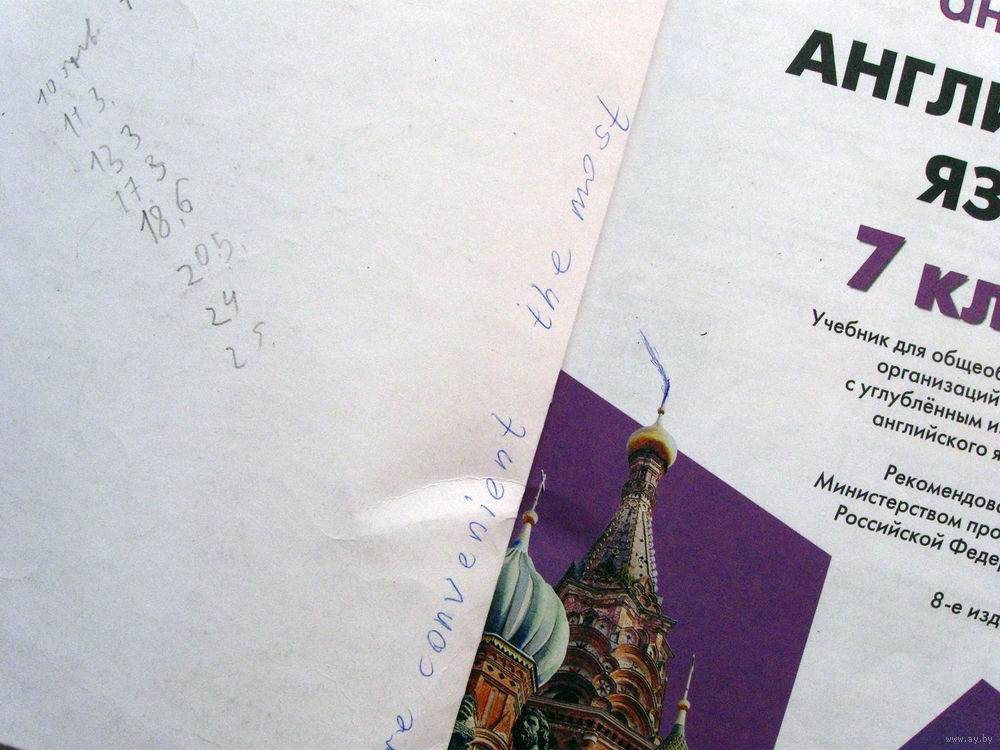 11 3.
13 3
17. 3
18, 6
20 5.
24
25.
convenient the most
ан
АНГЛИ
ЯЗ
7 кл
Учебник для общеоб
организаций
с углублённым из
английского я
Рекомендова
Министерством про
Российской Федер
8-е изд
www.ay.by